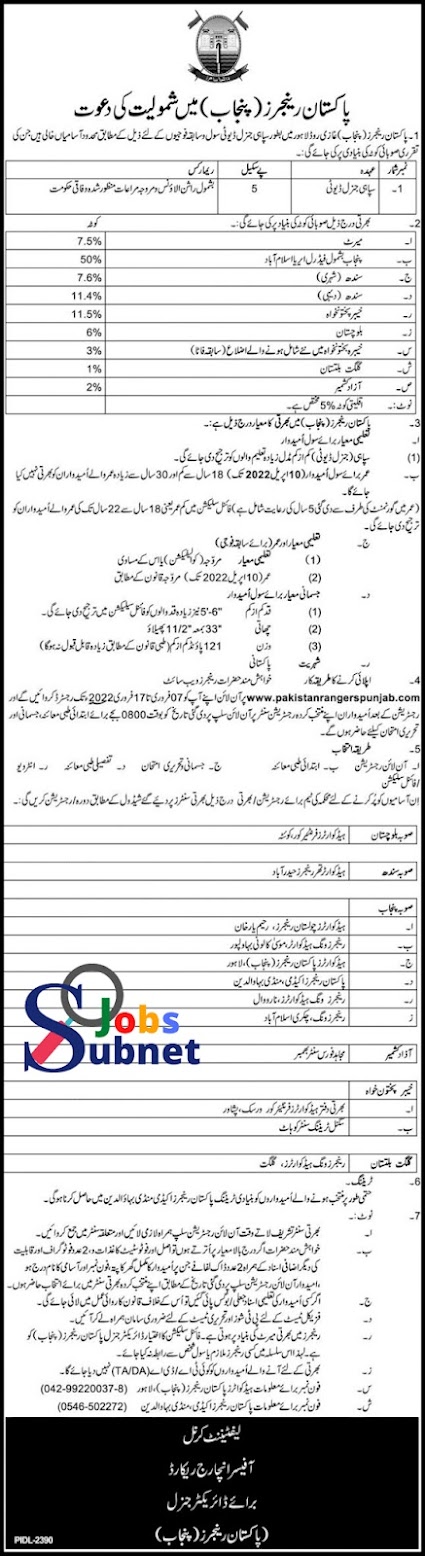 پاکستان رینجرز (پنجاب) میں شمولیت کی دعوت
1۔ پاکستان رینجرز (پنجاب) غازی روڈ لاہور میں بطور سپاہی جنرل ڈیوٹی سول و سابقہ فوجیوں کے لئے ذیل کے مطابق محدود آسامیاں خالی ہیں جن کی
تقرری صوبائی کوٹہ کی بنیاد پر کی جائے گی:۔
نمبر شمار عہدہ پے سکیل ریمارکس
1۔ سپاہی جنرل ڈیوٹی 5 بشمول راشن الاؤنس و مروجہ مراعات منظور شدہ وفاقی حکومت
2۔ بھرتی درج ذیل صوبائی کوٹہ کی بنیاد پر کی جائے گی:۔ کوٹہ
ا۔ میرٹ 7.5%
ب۔ پنجاب بشمول فیڈرل ایریا اسلام آباد 50%
ج۔ سندھ (شہری) 7.6%
د۔ سندھ (دیہی) 11.4%
ر۔ خیبر پختونخواہ 11.5%
ز۔ بلوچستان 6%
س۔ خیبر پختونخواہ میں نئے شامل ہونے والے اضلاع (سابقہ فاٹا) 3%
ش۔ گلگت بلتستان 1%
ص۔ آزاد کشمیر 2%
نوٹ:۔ اقلیتی کوٹہ 5% مختص ہے۔
3۔ پاکستان رینجرز (پنجاب) میں بھرتی کا معیار درج ذیل ہے:۔
ا۔ تعلیمی معیار برائے سول اُمیدوار
(1) سپاہی (جنرل ڈیوٹی) کم از کم مڈل زیادہ تعلیم والوں کو ترجیح دی جائے گی۔
ب۔ عمر برائے سول اُمیدوار (10 اپریل 2022 تک) 18 سال سے کم اور 30 سال سے زیادہ عمر والے اُمیدواران کو بھرتی نہیں کیا
جائے گا۔
(عمر میں گورنمنٹ کی طرف سے دی گئی 5 سال کی رعایت شامل ہے) فائنل سلیکشن میں کم عمر یعنی 18 سال سے 22 سال تک کی عمر والے اُمیدواران کو
ترجیح دی جائے گی۔
ج۔ تعلیمی معیار اور عمر (برائے سابقہ فوجی)
(1) تعلیمی معیار مروّجہ (کوالیفکیشن) یا اس کے مساوی
(2) عمر (10 اپریل 2022 تک) مروّجہ قانون کے مطابق
د۔ جسمانی معیار برائے سول اُمیدوار
(1) قد کم از کم 5'-6" نیز زیادہ قد والوں کو فائنل سلیکشن میں ترجیح دی جائے گی۔
(2) چھاتی 33" بمعہ 11/2" پھیلاؤ
(3) وزن 121 پاؤنڈ کم از کم (طبی قانون کے مطابق زیادہ قابل قبول نہ ہوگا)
ر۔ شہریت پاکستانی
4۔ اپلائی کرنے کا طریقہ کار خواہش مند حضرات رینجرز ویب سائٹ
www.pakistanrangerspunjab.com پر آن لائن اپنے آپ کو 07 فروری تا 17 فروری 2022 تک رجسٹرڈ کروائیں گے اور
رجسٹریشن کے بعد اُمیدواران اپنے منتخب کردہ رجسٹریشن سنٹر پر آن لائن سلپ پر دی گئی تاریخ کو بوقت 0800 بجے برائے ابتدائی طبی معائنہ، جسمانی اور
تحریری امتحان کیلئے حاضر ہوں گے۔
5۔ طریقہ انتخاب
ا۔ آن لائن رجسٹریشن ب۔ ابتدائی طبی معائنہ ج۔ جسمانی/تحریری امتحان د۔ تفصیلی طبی معائنہ ر۔ انٹرویو
/فائنل سلیکشن
اِن آسامیوں کو پُر کرنے کے لئے محکمہ کی ٹیم برائے رجسٹریشن/بھرتی درج ذیل بھرتی سنٹرز پر دیے گئے شیڈول کے مطابق دورہ/رجسٹریشن کریں گی:۔
صوبہ بلوچستان ہیڈ کوارٹرز فرنٹیئر کور، کوئٹہ
صوبہ سندھ ہیڈ کوارٹر تھر رینجرز حیدرآباد
صوبہ پنجاب
ا۔ ہیڈ کوارٹرز چولستان رینجرز، رحیم یار خان
ب۔ رینجرز ونگ ہیڈ کوارٹر، موسیٰ کالونی بہاولپور
ج۔ ہیڈ کوارٹرز پاکستان رینجرز (پنجاب)، لاہور
د۔ پاکستان رینجرز اکیڈمی، منڈی بہاوالدین
ر۔ رینجرز ونگ ہیڈ کوارٹرز، نارووال
ز رینجرز ونگ، چکری اسلام آباد
آزاد کشمیر مجاہد فورس سنٹر بھمبر
خیبر پختون خواہ
ا۔ بھرتی دفتر ہیڈ کوارٹرز فرنٹیئر کور ورسک، پشاور
ب۔ سگنل ٹریننگ سنٹر کوہاٹ
گلگت بلتستان رینجرز ونگ ہیڈ کوارٹرز، گلگت
Jobs
Subnet
6۔ ٹریننگ۔
حتمی طور پر منتخب ہونے والے اُمیدواروں کو بنیادی ٹریننگ پاکستان رینجرز اکیڈمی منڈی بہاؤالدین میں حاصل کرنا ہوگی۔
7۔ نوٹ:۔
ا۔ بھرتی سنٹر تشریف لاتے وقت آن لائن رجسٹریشن سلپ ہمراہ لازمی لائیں اور متعلقہ سنٹر میں جمع کروائیں۔
ب۔ خواہش مند حضرات اگر درج بالا معیار پر اُترتے ہوں تو اصل اور فوٹو سٹیٹ کاغذات و، 2 عدد فوٹو گراف اور قابلیت
کی دیگر اضافی اسناد کے ہمراہ 2 عدد ڈاک لفافے جن پر اُمیدوار کا مکمل گھر کا پتہ، فون نمبر اور آسامی کا نام درج ہو
، اُمیدوار ان آن لائن رجسٹریشن سلپ پر دی گئی تاریخ کے مطابق اپنے منتخب کردہ بھرتی سنٹر میں برائے انتخاب حاضر ہوں۔
ج۔ اگر کسی اُمیدوار کی تعلیمی اسناد جعلی/بوگس پائی گئیں تو اُس کے خلاف قانون کارروائی عمل میں لائی جائے گی۔
د۔ فزیکل ٹیسٹ کے لئے پی ٹی شوز اور تحریری ٹیسٹ کے لئے ضروری سامان ہمراہ لے کر آئیں۔
ر۔ رینجرز میں بھرتی میرٹ کی بنیاد پر ہوتی ہے۔ فائنل سلیکشن کا اختیار ڈائریکٹر جنرل پاکستان رینجرز (پنجاب) کو
ہے۔ لہٰذا اس سلسلہ میں کسی رینجرز ملازم یا سول شخص سے رابطہ نہ کیا جائے۔
ز۔ بھرتی کے لئے آنے والے اُمیدواروں کو کوئی ٹی اے/ڈی اے (TA/DA) نہیں دیا جائے گا۔
س۔ فون نمبر برائے معلومات ہیڈ کوارٹرز پاکستان رینجرز (پنجاب)، لاہور (042-99220037-8)
ش۔ فون نمبر برائے معلومات پاکستان رینجرز اکیڈمی، منڈی بہاوالدین (0546-502272)
لیفٹیننٹ کرنل
آفیسر انچارج ریکارڈ
برائے ڈائریکٹر جنرل
(پاکستان رینجرز (پنجاب)
PIDL-2390